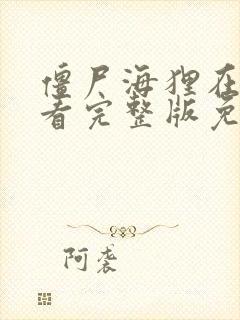 僵尸海狸在
看完整版免
阿袭